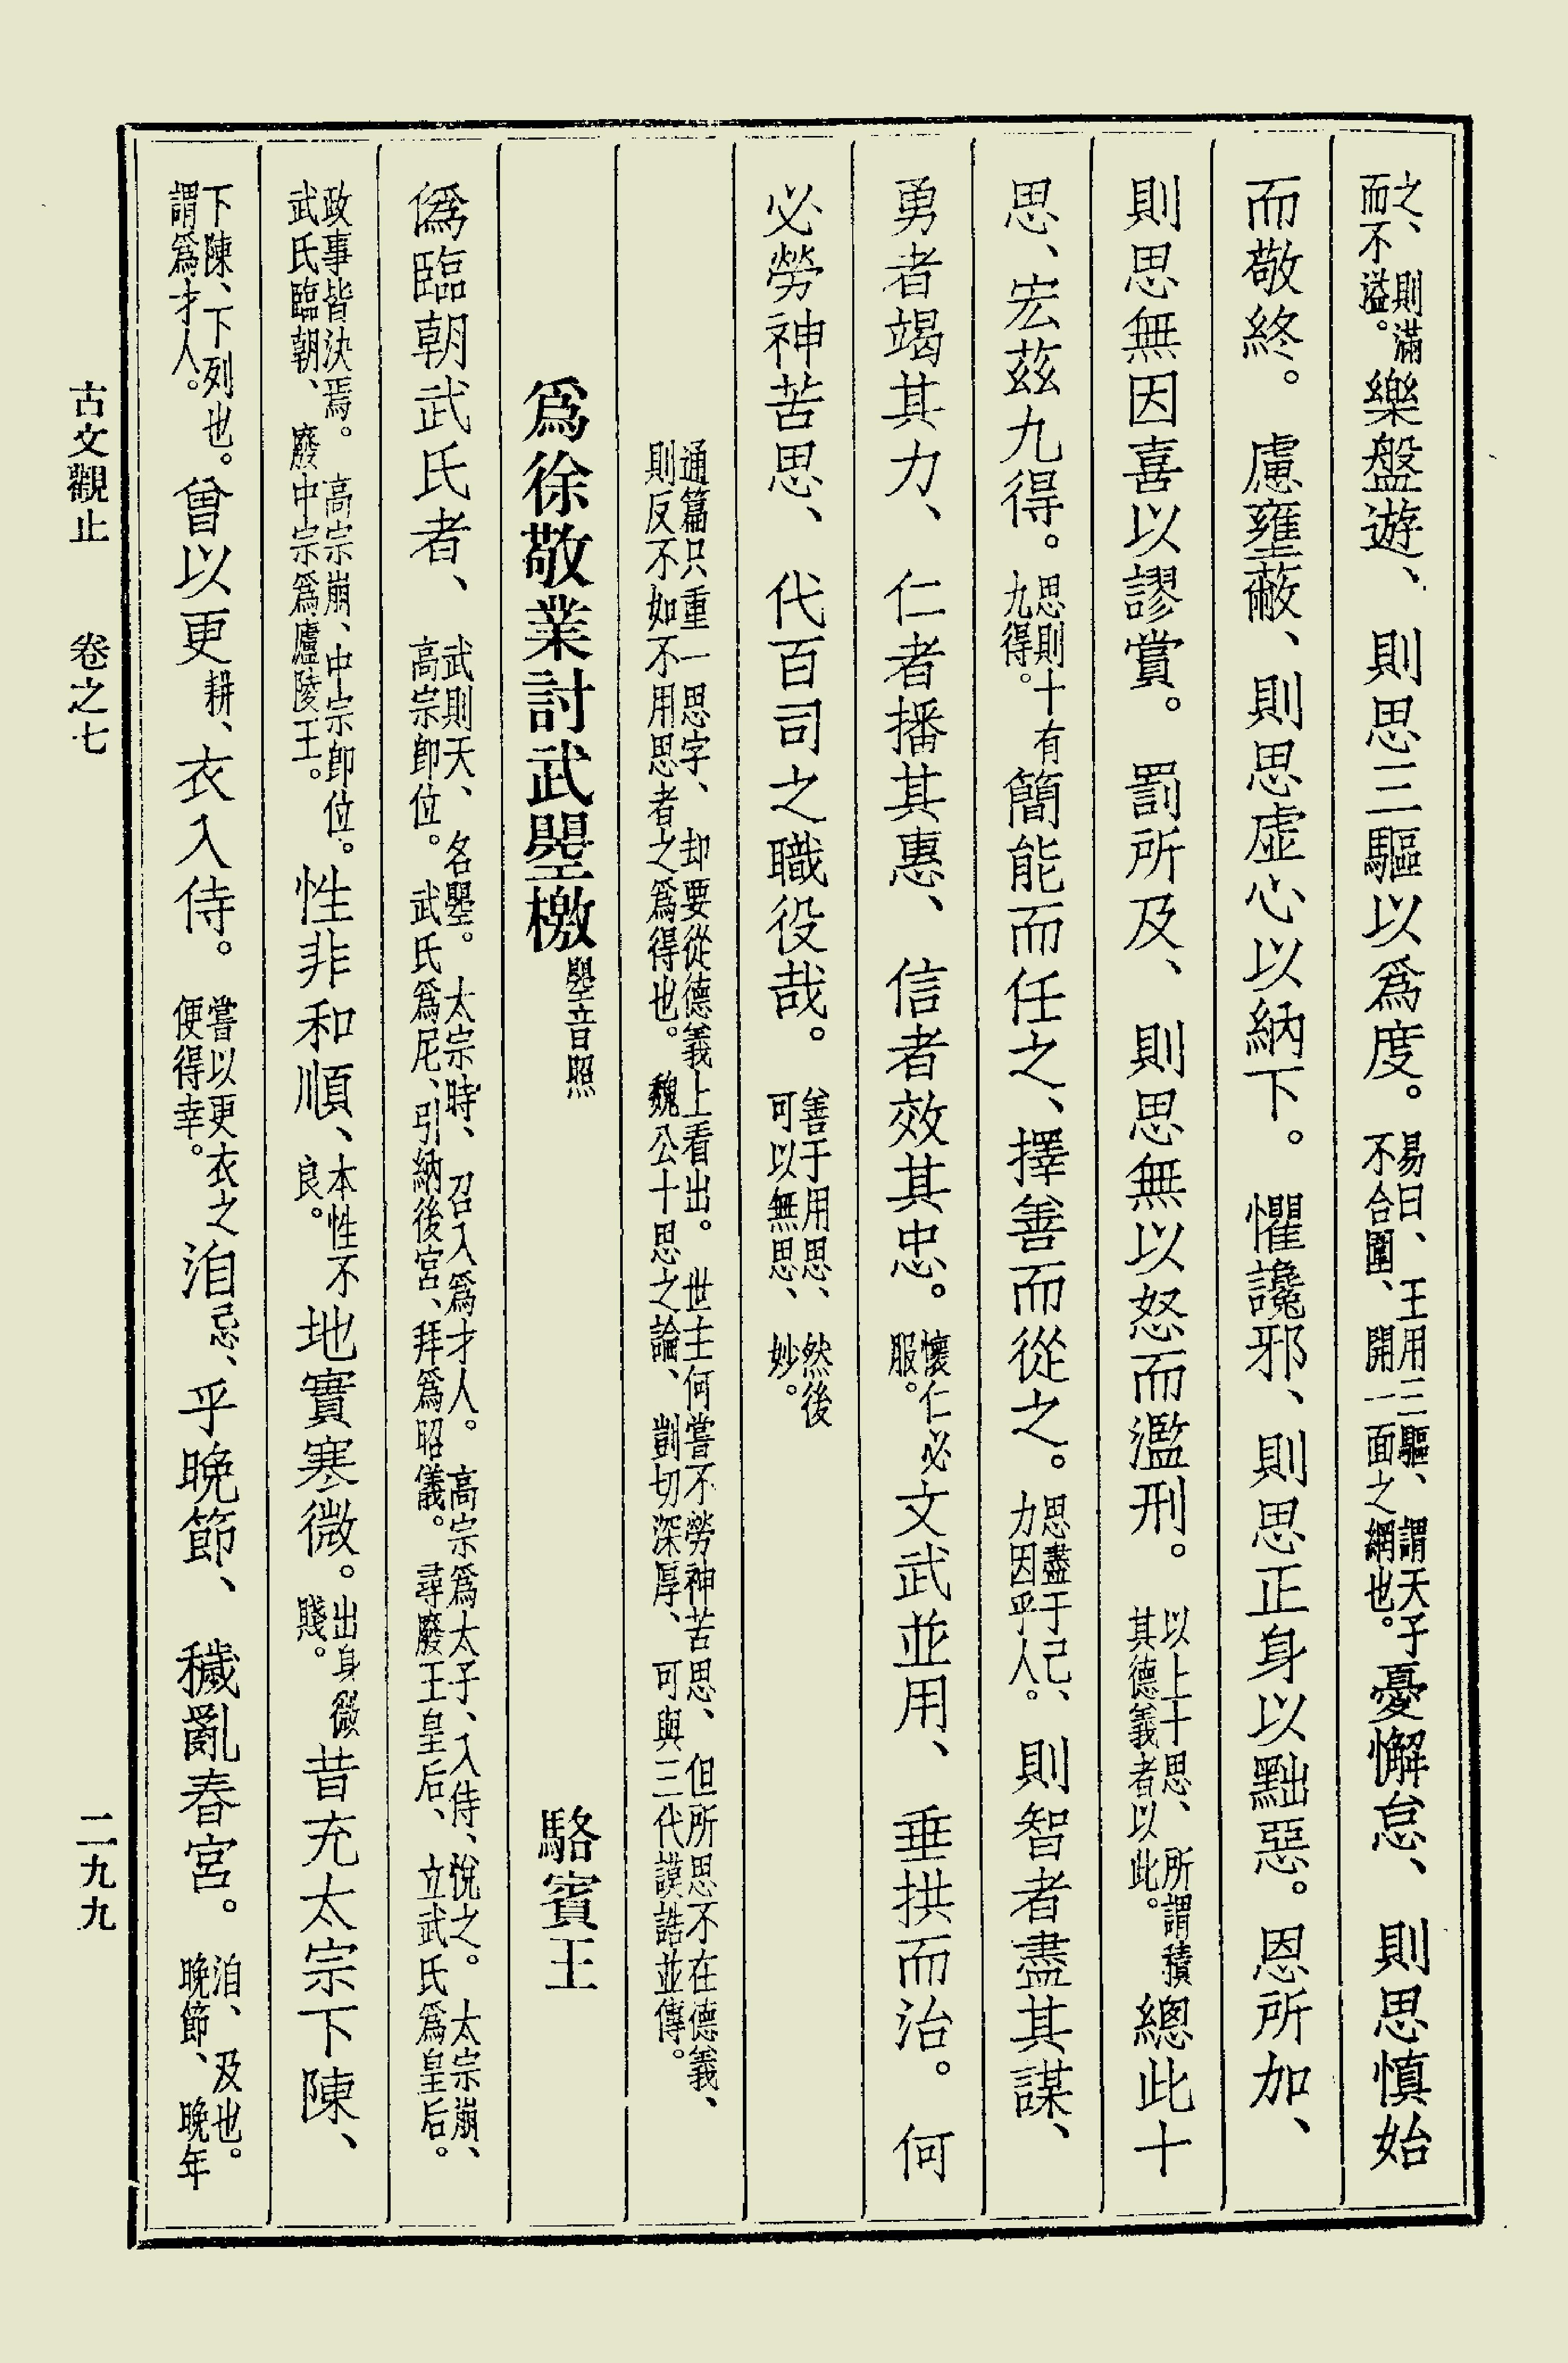 之、則滿而不溢。樂盤遊、則思三驅以爲度。易曰、王用三驅、謂天子不合圍、開一面之網也。憂懈怠、則思慎始
而敬終。慮壅蔽、則思虛心以納下。懼讒邪、則思正身以黜惡。恩所加、
則思無因喜以謬賞。罰所及、則思無以怒而濫刑。以上十思、所謂積其德義者以此。總此十
思、宏茲九得。思則十有九得。簡能而任之、擇善而從之。思盡于己、力因乎人。則智者盡其謀、
勇者竭其力、仁者播其惠、信者效其忠。懷仁必服。文武並用、垂拱而治。何
必勞神苦思、代百司之職役哉。善于用思、然後可以無思、妙。
通篇只重一思字、却要從德義上看出。世主何嘗不勞神苦思、但所思不在德義、則反不如不用思者之爲得也。魏公十思之論、剴切深厚、可與三代謨誥並傳。
爲徐敬業討武曌檄曌音照 駱賓王
僞臨朝武氏者、武則天、名曌。太宗時、召入爲才人。高宗爲太子、入侍、悅之。太宗崩、高宗卽位。武氏爲尼、引納後宮、拜爲昭儀。尋廢王皇后、立武氏爲皇后。
政事皆決焉。高宗崩、中宗卽位。武氏臨朝、廢中宗爲廬陵王。性非和順、本性不良。地實寒微。出身微賤。昔充太宗下陳、
下陳、下列也。謂爲才人。曾以更耕、衣入侍。嘗以更衣之便得幸。洎忌、乎晚節、穢亂春宮。洎、及也。晚節、晚年
古文觀止 卷之七 二九九